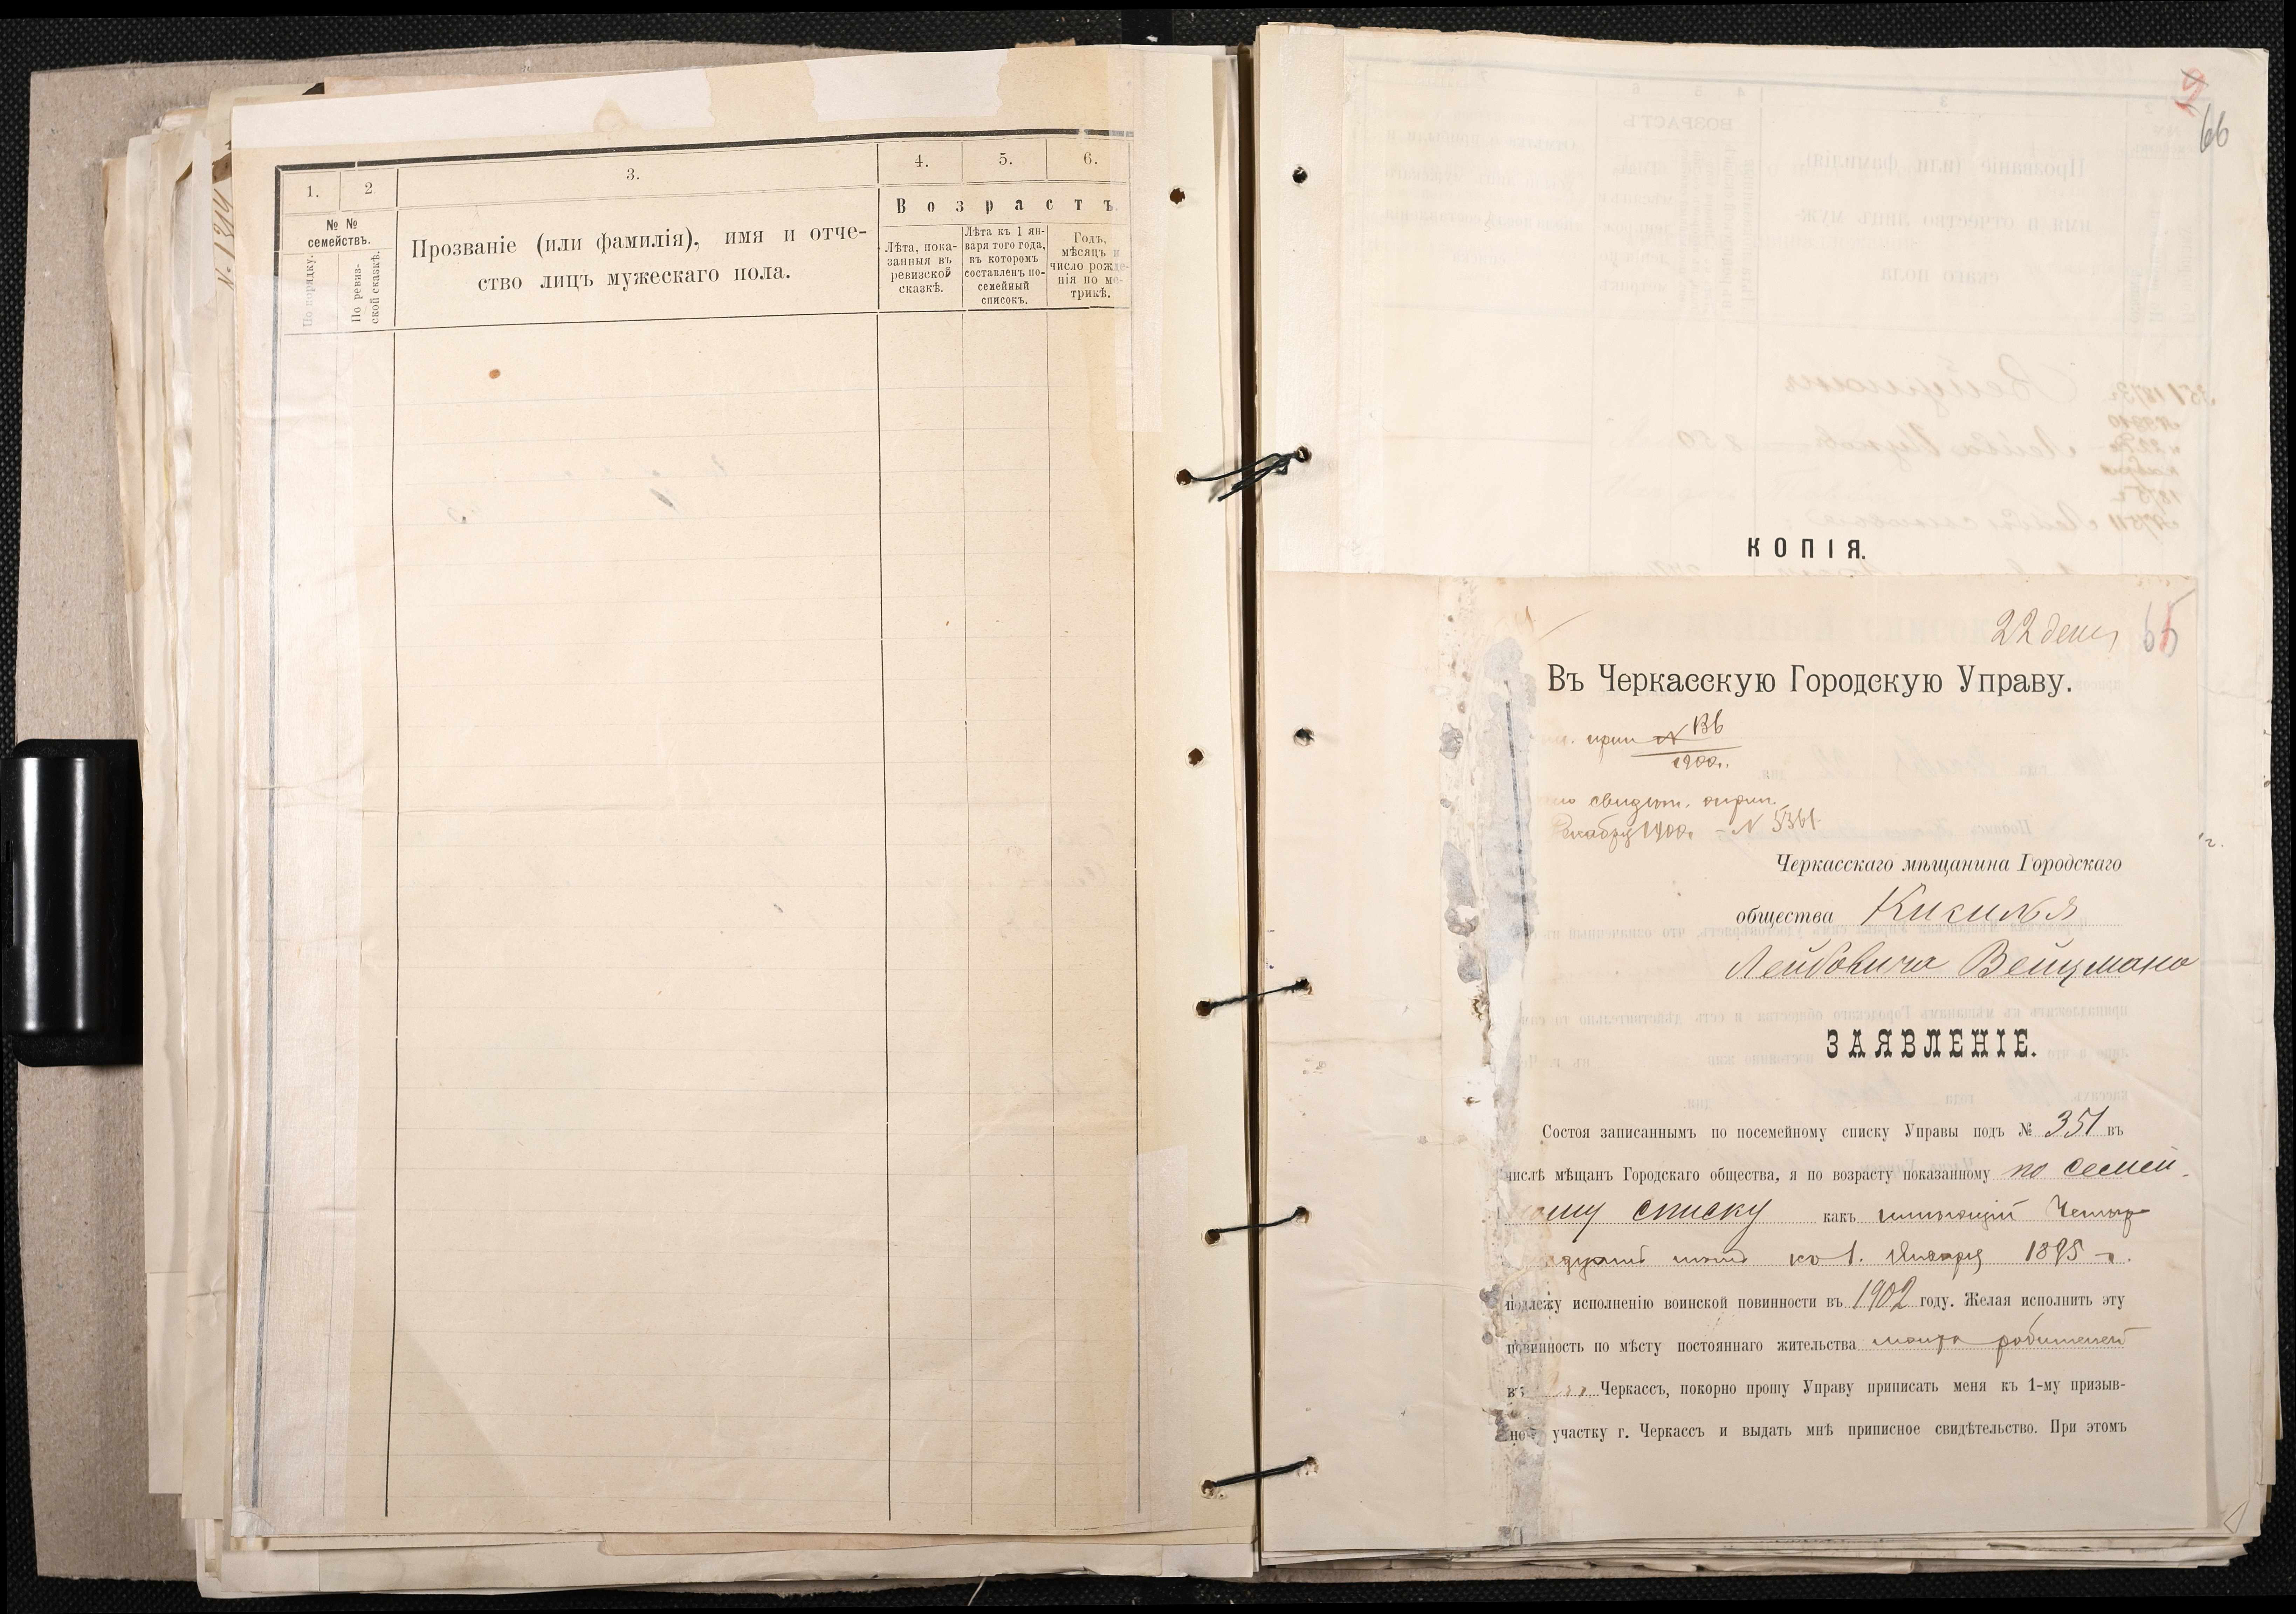 1.
2
3.
4.
5.
6.
№ №
семействъ.
По порядку.
По ревиз-
ской сказкѣ.
Прозваніе (или фамилія), имя и отче-
ство лицъ мужескаго пола.
Возрастъ.
Лѣта, пока-
занныя въ
ревизской
сказкѣ.
Лѣта къ 1 ян-
варя того года,
въ которомъ
составленъ по-
семейный
списокъ.
Годъ,
мѣсяцъ и
число рожде-
нія по ме-
трикѣ.
66
КОПІЯ.
22 дек
65
Въ Черкасскую Городскую Управу.
1900г.
свидѣт.
1900г. № 5361
Черкасскаго мѣщанина Городскаго
общества Кикиля
Лейбовича Вейцмана
ЗАЯВЛЕНІЕ.
Состоя записаннымъ по посемейному списку Управы подъ № 351 въ
числѣ мѣщанъ Городскаго общества, я по возрасту показанному по семей-
ному списку какъ имѣющій Четыр
надцать лѣтъ къ 1. Января 1895 г.
подлежу исполненію воинской повинности въ 1902 году. Желая исполнить эту
повинность по мѣсту постояннаго жительства моихъ родителей
въ Черкассъ, покорно прошу Управу приписать меня къ 1-му призыв-
ному участку г. Черкассъ и выдать мнѣ приписное свидѣтельство. При этомъ